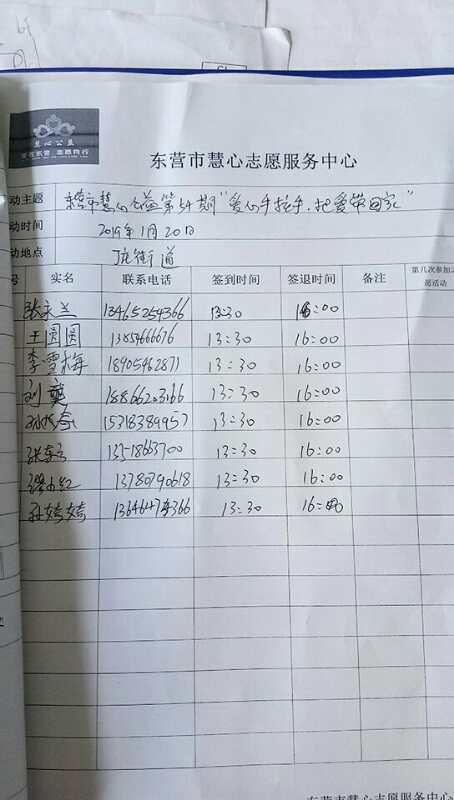 慧心公益
东营市慧心志愿服务中心
动主题 东营市慧心公益第54期“爱心手拉手，把爱带回家”
动时间 2019年1月20日
动地点 街道
号 实名 联系电话 签到时间 签退时间 备注 第几次参加志愿活动
张永兰 13465254366 13:30 16:00
王圆圆 13854666676 13:30 16:00
李雪梅 18905462871 13:30 16:00
刘 18866203166 13:30 16:00
15318389957 13:30 16:00
张 13518663700 13:30 16:00
13780790618 13:30 16:00
孙婷婷 13:30 16:00
东营市慧心志愿服务中心